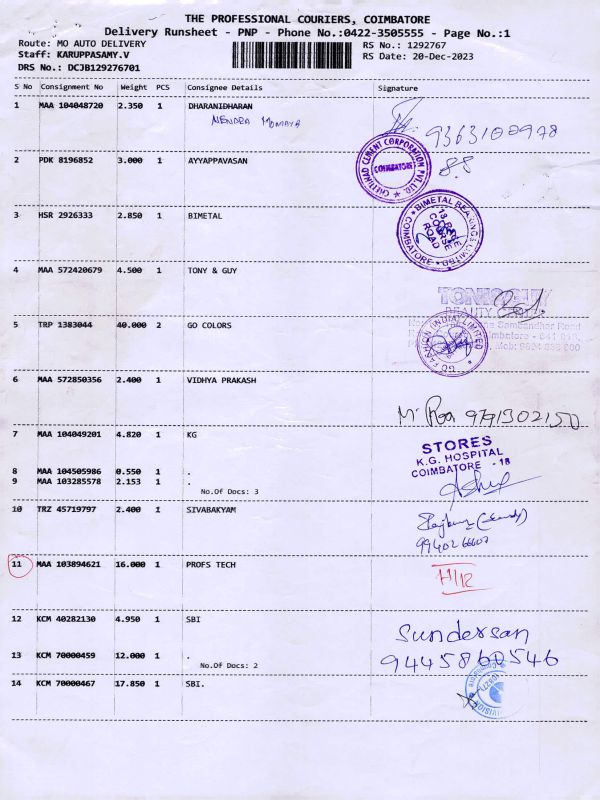 THE PROFESSIONAL COURIERS, COIMBATORE
Delivery Runsheet - PNP - Phone No.:0422-3505555 - Page No.:1
Route: MO AUTO DELIVERY RS No.: 1292767
Staff: KARUPPASAMY.V RS Date: 20-Dec-2023
DRS No.: DCJB129276701
S No Consignment No Weight PCS Consignee Details Signature
1 MAA 104048720 2.350 1 DHARANIDHARAN
9363100978
CHETTINAD CEMENT CORPORATION PVT. LTD.
COIMBATORE
2 PDK 8196852 3.000 1 AYYAPPAVASAN
3 HSR 2926333 2.850 1 BIMETAL
BIMETAL BEARINGS LIMITED
COIMBATORE
4 MAA 572420679 4.500 1 TONY & GUY
5 TRP 1383044 40.000 2 GO COLORS
GO FASHION (INDIA) LIMITED
6 MAA 572850356 2.400 1 VIDHYA PRAKASH
9791302150
7 MAA 104049201 4.820 1 KG
STORES
K.G. HOSPITAL
COIMBATORE - 18
8 MAA 104505986 0.550 1 .
9 MAA 103285578 2.153 1 .
No.Of Docs: 3
10 TRZ 45719797 2.400 1 SIVABAKYAM
11 MAA 103894621 16.000 1 PROFS TECH
12 KCM 40282130 4.950 1 SBI
Sundersan
9445860546
13 KCM 70000459 12.000 1 .
No.Of Docs: 2
14 KCM 70000467 17.850 1 SBI.